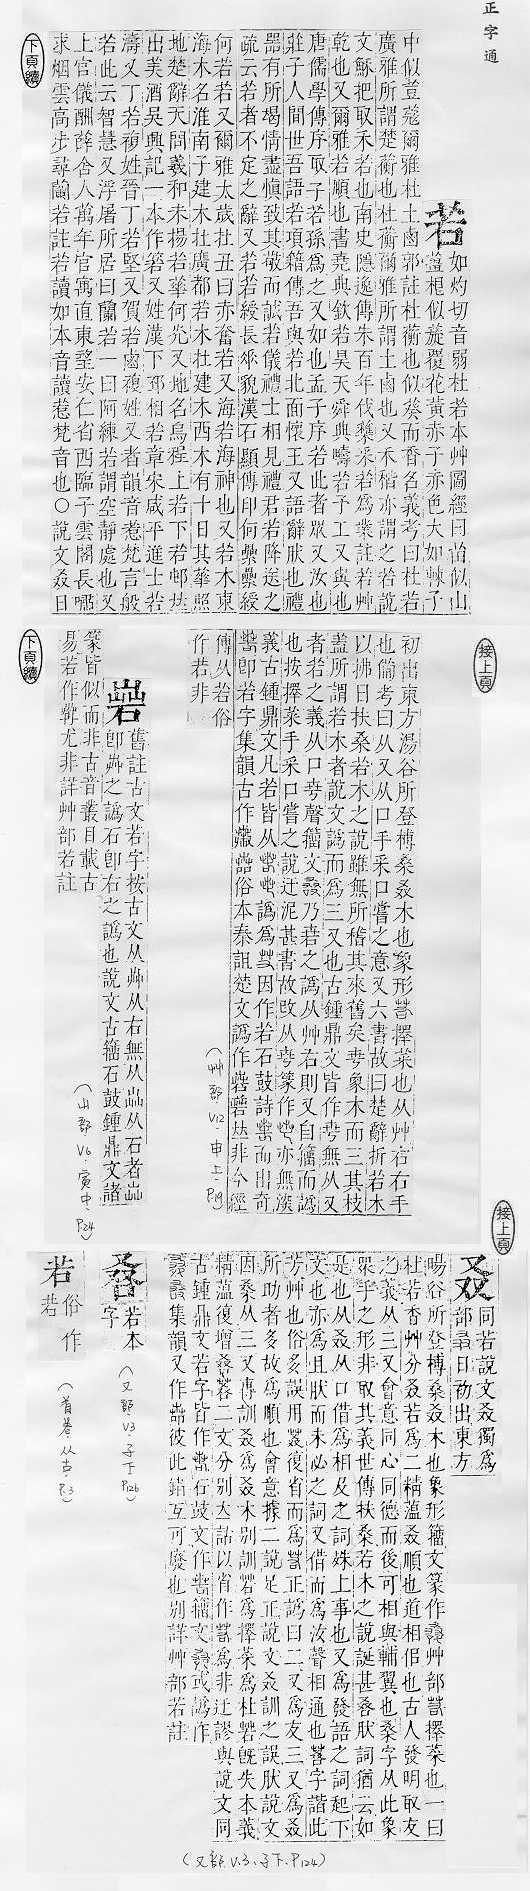 正字通
若
如灼切音弱杜若本艸圖經曰苗似山
薑根似旋覆花黃赤子赤色大如棘子
中似荳蔻爾雅杜土鹵郭註杜蘅也似葵而香名義考曰杜若
廣雅所謂楚蘅也杜蘅爾雅所謂土鹵也又禾稭亦謂之若說
文穌把取禾若也南史隱逸傳朱百年伐樵采若爲業註若艸
乾也又爾雅若順也書堯典欽若昊天舜典疇若予工又與也
唐儒學傳序取子若孫爲之又如也孟子序若此者眾又汝也
莊子人間世吾語若項籍傳吾與若北面懷王又語辭肰也禮
器有所竭情盡愼致其敬而誠若儀禮士相見禮君若降送之
疏云若者不定之辭又若若綬長皃漢石顯傳印何纍纍綬
何若若又爾雅太歲在丑曰赤奮若又海若海神也又若木東
海木名淮南子建木在廣都若木在建木西木有十日其華照
地楚辭天問羲和未揚若華何光又地名烏程上若下若邨
出美酒吳興記一本作箬又姓漢下邳相若章宋咸平進士若
濤又丁若複姓晉丁若堅又賀若鹵複姓又者韻音惹梵言般
若此云智慧又浮屠所居曰蘭若一曰阿練若謂空靜處也又
上官儀酬薛舍人萬年宮寓直東望安仁省西臨子雲閣長嘯
求烟雲高步尋蘭若註若讀如本音讀惹梵音也〇說文叒日
下頁續
接上頁
初出東方湯谷所登榑桑叒木也象形若擇菜也从艸右右手
也備考曰从又从口手采口嘗之意又六書故曰楚辭折若木
以拂日扶桑若木之說雖無所稽其來舊矣象木而三其枝
蓋所謂若木者說文譌而爲三又也古鍾鼎文皆作無从又
者若之義从口聲籀文乃之譌从艸右則又自籀而譌
也按擇菜手采口嘗之說迂泥甚書故改从篆作亦無
義古鍾鼎文凡若皆从譌爲因作若石鼓詩而出奇
卽若字集韻古作俗本泰詛楚文譌作非今經
傳从若俗
作若非
(艸部V12.申上.P19)
嵒
舊註古文若字按古文从艸从右無从从石者
卽艸之譌石卽右之譌也說文古籀石鼓鍾鼎文諸
篆皆似而非古音叢目載古
易若作尤非詳艸部若註
(山部V6.寅中.P24)
下頁續
接上頁
叒
同若說文叒獨爲
部日初出東方
暘谷所登榑桑叒木也象形籀文篆作艸部若擇菜也一曰
杜若香艸分叒若爲二精薀叒順也道相佀也古人發明取友
之義从三又會意同心同德而後可相與輔翼也桑字从此象
眾乎之形非取其義世傳扶桑若木之說誕甚肰詞猶云如
是也从叒从口借爲相及之詞殊上事也又爲發語之詞起下
文也亦爲且肰而未必之詞又借而爲汝聲相通也字諧此
芳艸也俗多誤用復省而爲正譌曰二又爲友三又爲叒
所助者多故爲順也會意據二說足正說文叒訓之誤肰說文
因桑从三又專訓叒爲叒木別訓若爲擇菜爲杜若旣失本義
精薀復增二文分別太詁以省作爲非迂謬與說文同
古鍾鼎文若字皆作石鼓文作籀文或譌作
集韻又作彼此錯互可廢也別詳艸部若註
(又部.V.3.子下.P124)
若本
字
(又部.V3.子下P126)
若
俗作
若
(首卷.从古.P.3)